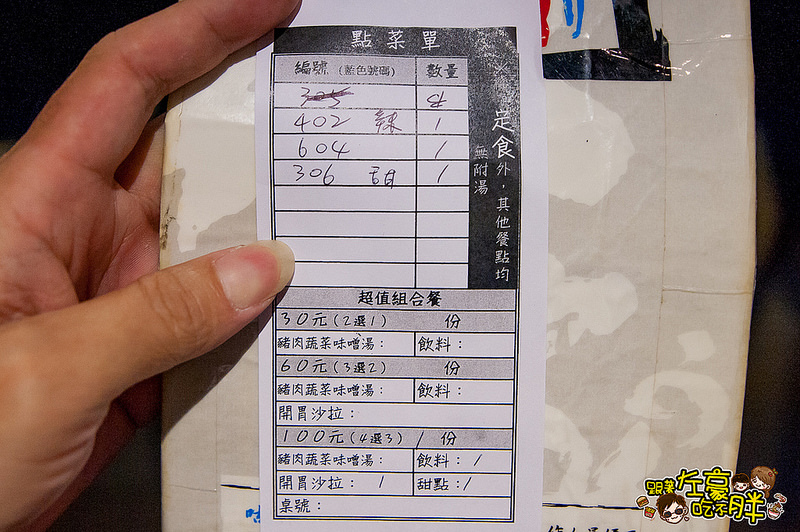 點菜單
編號 (藍色號碼) 數量
305
402 辣 1
604 1
306 甜 1
定食外，其他餐點均
無附湯
超值組合餐
30元(2選1) 份
豬肉蔬菜味噌湯： 飲料：
60元(3選2) 份
豬肉蔬菜味噌湯： 飲料：
開胃沙拉：
100元(4選3) 1 份
豬肉蔬菜味噌湯： 飲料：1
開胃沙拉： 1 甜點：1
桌號：
跟著左豪吃不胖